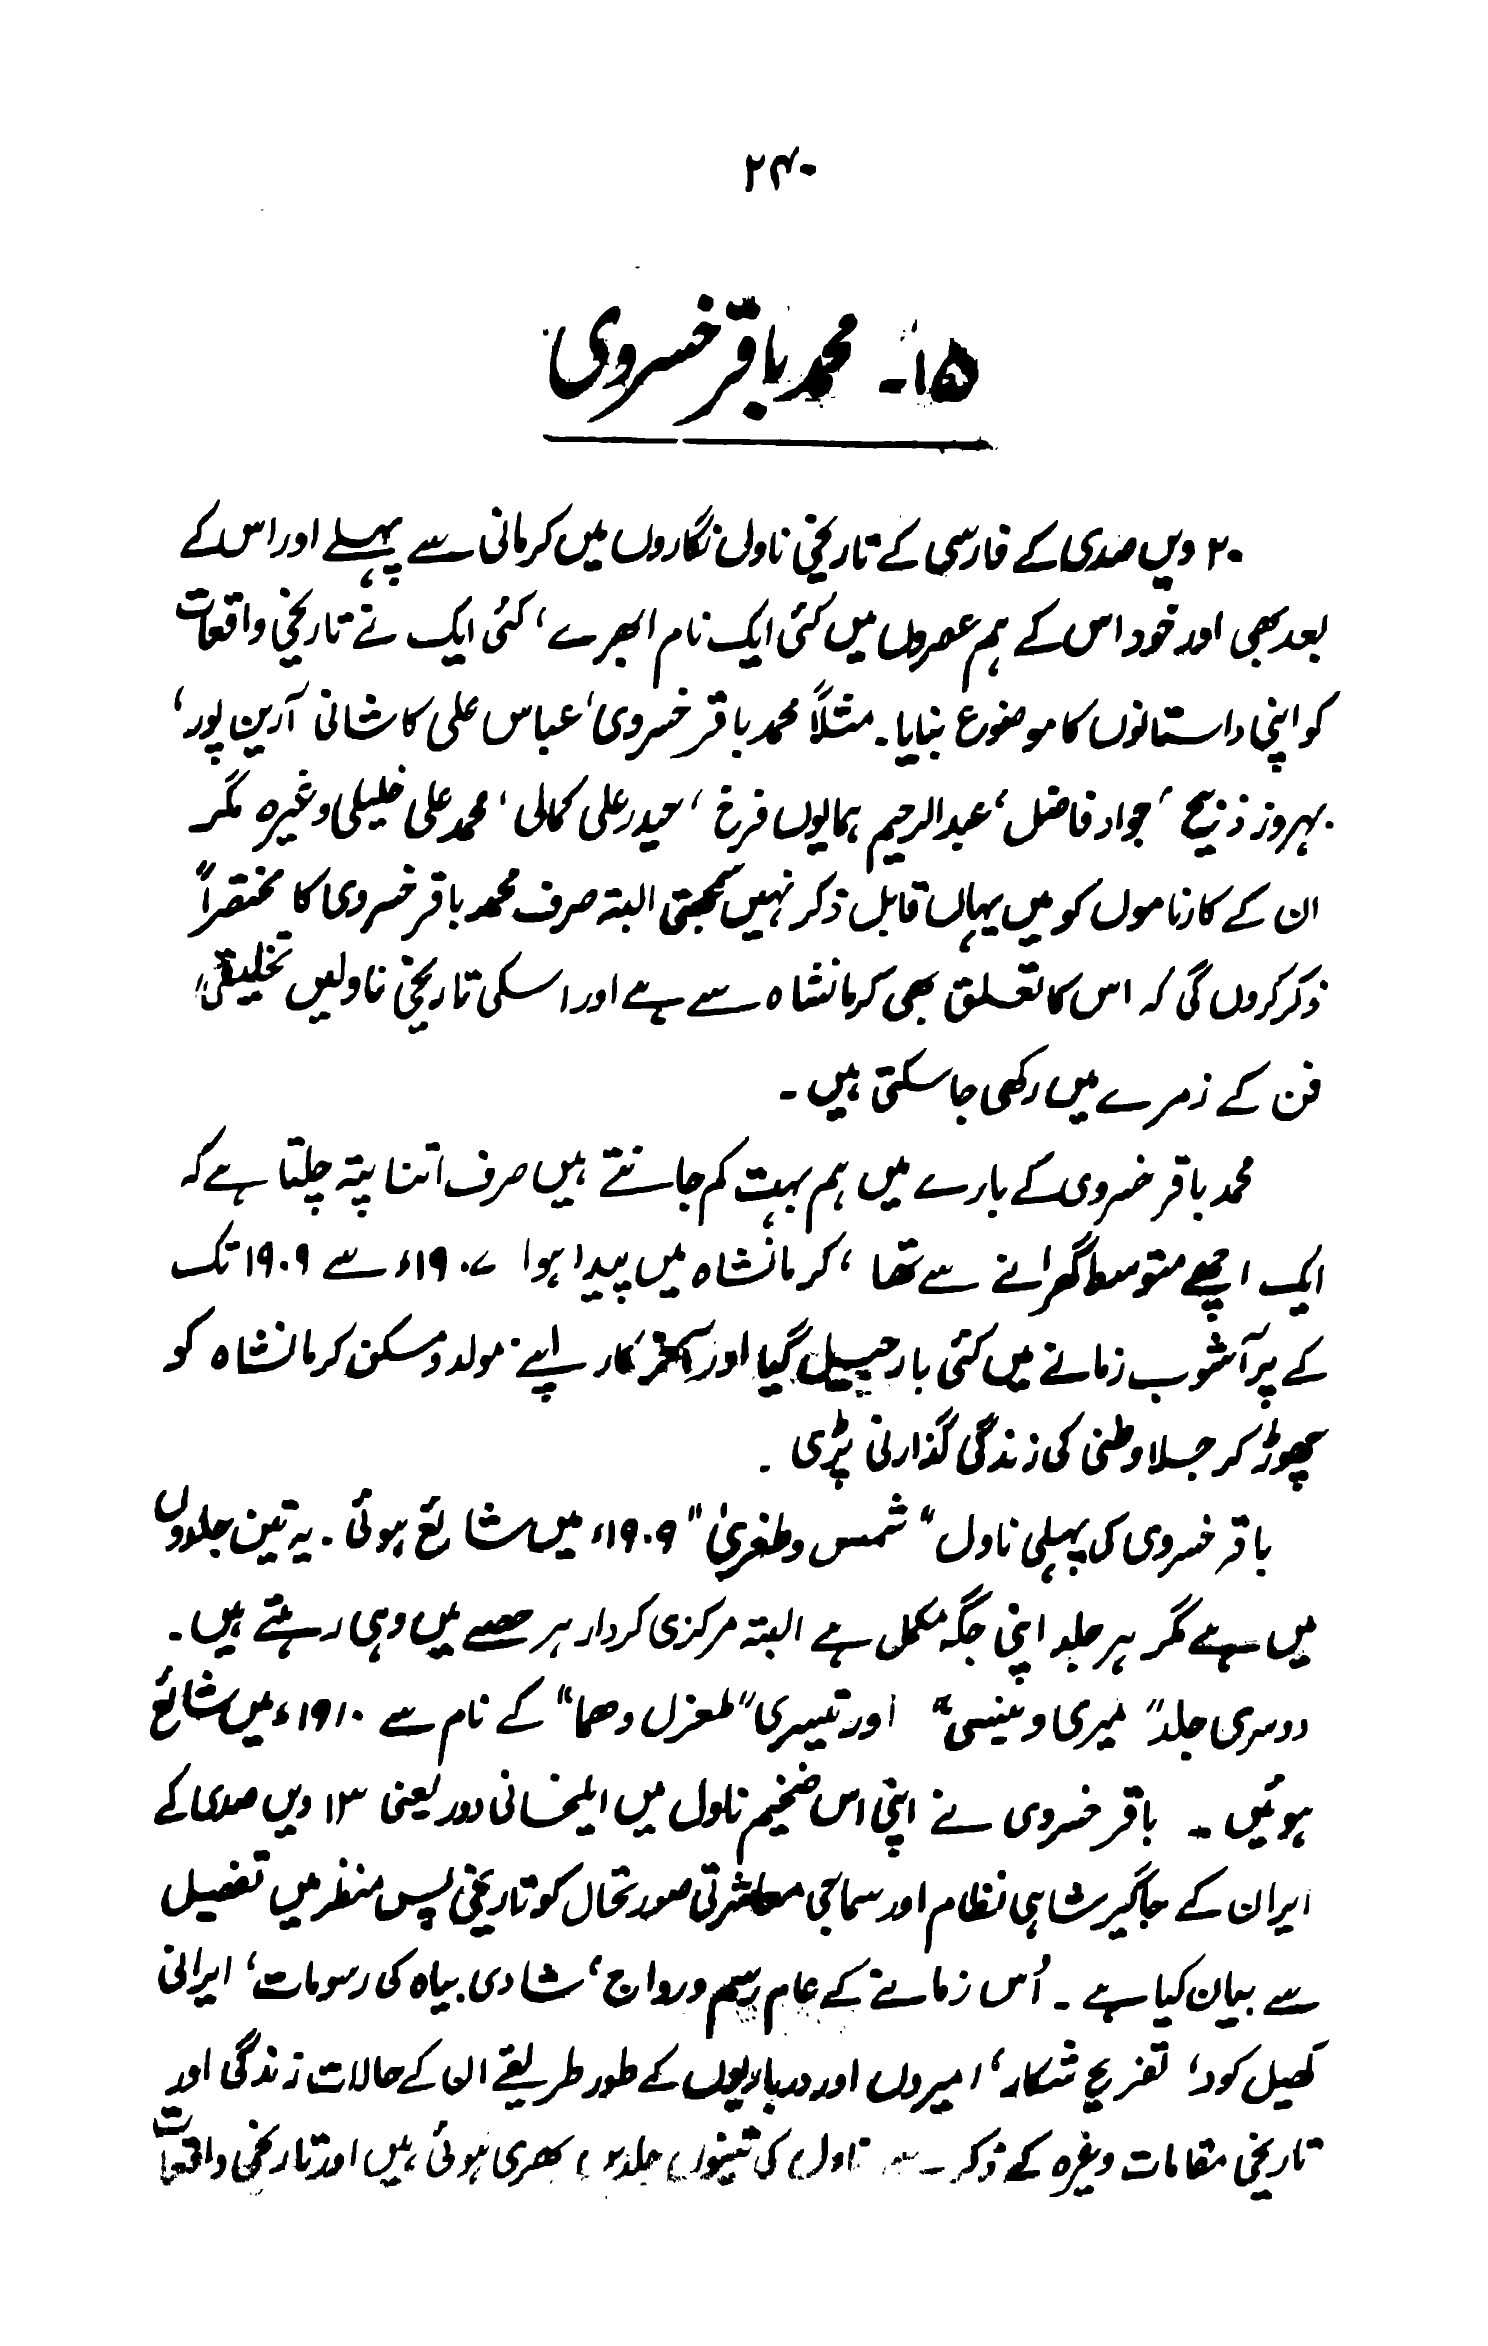 ۲۴۰
۱۵۔ محمد باقر خسروی
۲۰ ویں صدی کے فارسی کے تاریخی ناول نگاروں میں کرمانی سے پہلے اور اس کے
بعد بھی اور خود اس کے ہم عصروں میں کئی ایک نام ابھرے، کئی ایک نے تاریخی واقعات
کو اپنی داستانوں کا موضوع بنایا۔ مثلاً محمد باقر خسروی، عباس علی کاشانی آرین پور،
بہروز ذبیح، جواد فاضل، عبدالرحیم ہمایوں فرخ، حیدر علی کمالی، محمد علی خلیلی وغیرہ مگر
ان کے کارناموں کو میں یہاں قابل ذکر نہیں سمجھتی البتہ صرف محمد باقر خسروی کا مختصراً
ذکر کروں گی کہ اس کا تعلق بھی کرمانشاہ سے ہے اور اسکی تاریخی ناولیں تخلیقی
فن کے زمرے میں رکھی جا سکتی ہیں۔
محمد باقر خسروی کے بارے میں ہم بہت کم جانتے ہیں صرف اتنا پتہ چلتا ہے کہ
ایک اچھے متوسط گھرانے سے تھا، کرمانشاہ میں پیدا ہوا ۱۹۰۷ء سے ۱۹۰۹ تک
کے پرآشوب زمانے میں کئی بار جیل گیا اور آخر کار اپنے مولد و مسکن کرمانشاہ کو
چھوڑ کر جلاوطنی کی زندگی گذارنی پڑی۔
باقر خسروی کی پہلی ناول "شمس و طغریٰ" ۱۹۰۹ء میں شائع ہوئی۔ یہ تین جلدوں
میں ہے مگر ہر جلد اپنی جگہ مکمل ہے البتہ مرکزی کردار ہر حصے میں وہی رہتے ہیں۔
دوسری جلد "میری و ینسی" اور تیسری "طغرل و ھما" کے نام سے ۱۹۱۰ء میں شائع
ہوئیں۔ باقر خسروی نے اپنی اس ضخیم ناول میں ایلخانی دور یعنی ۱۳ ویں صدی کے
ایران کے جاگیر شاہی نظام اور سماجی معاشرتی صورتحال کو تاریخی پس منظر میں تفصیل
سے بیان کیا ہے۔ اُس زمانے کے عام رسم و رواج، شادی بیاہ کی رسومات، ایرانی
کھیل کود، تفریح شکار، امیروں اور درباریوں کے طور طریقے ان کے حالات زندگی اور
تاریخی مقامات وغیرہ کے ذکر سے ناول کی تینوں جلدیں بھری ہوئی ہیں اور تاریخی واقعات